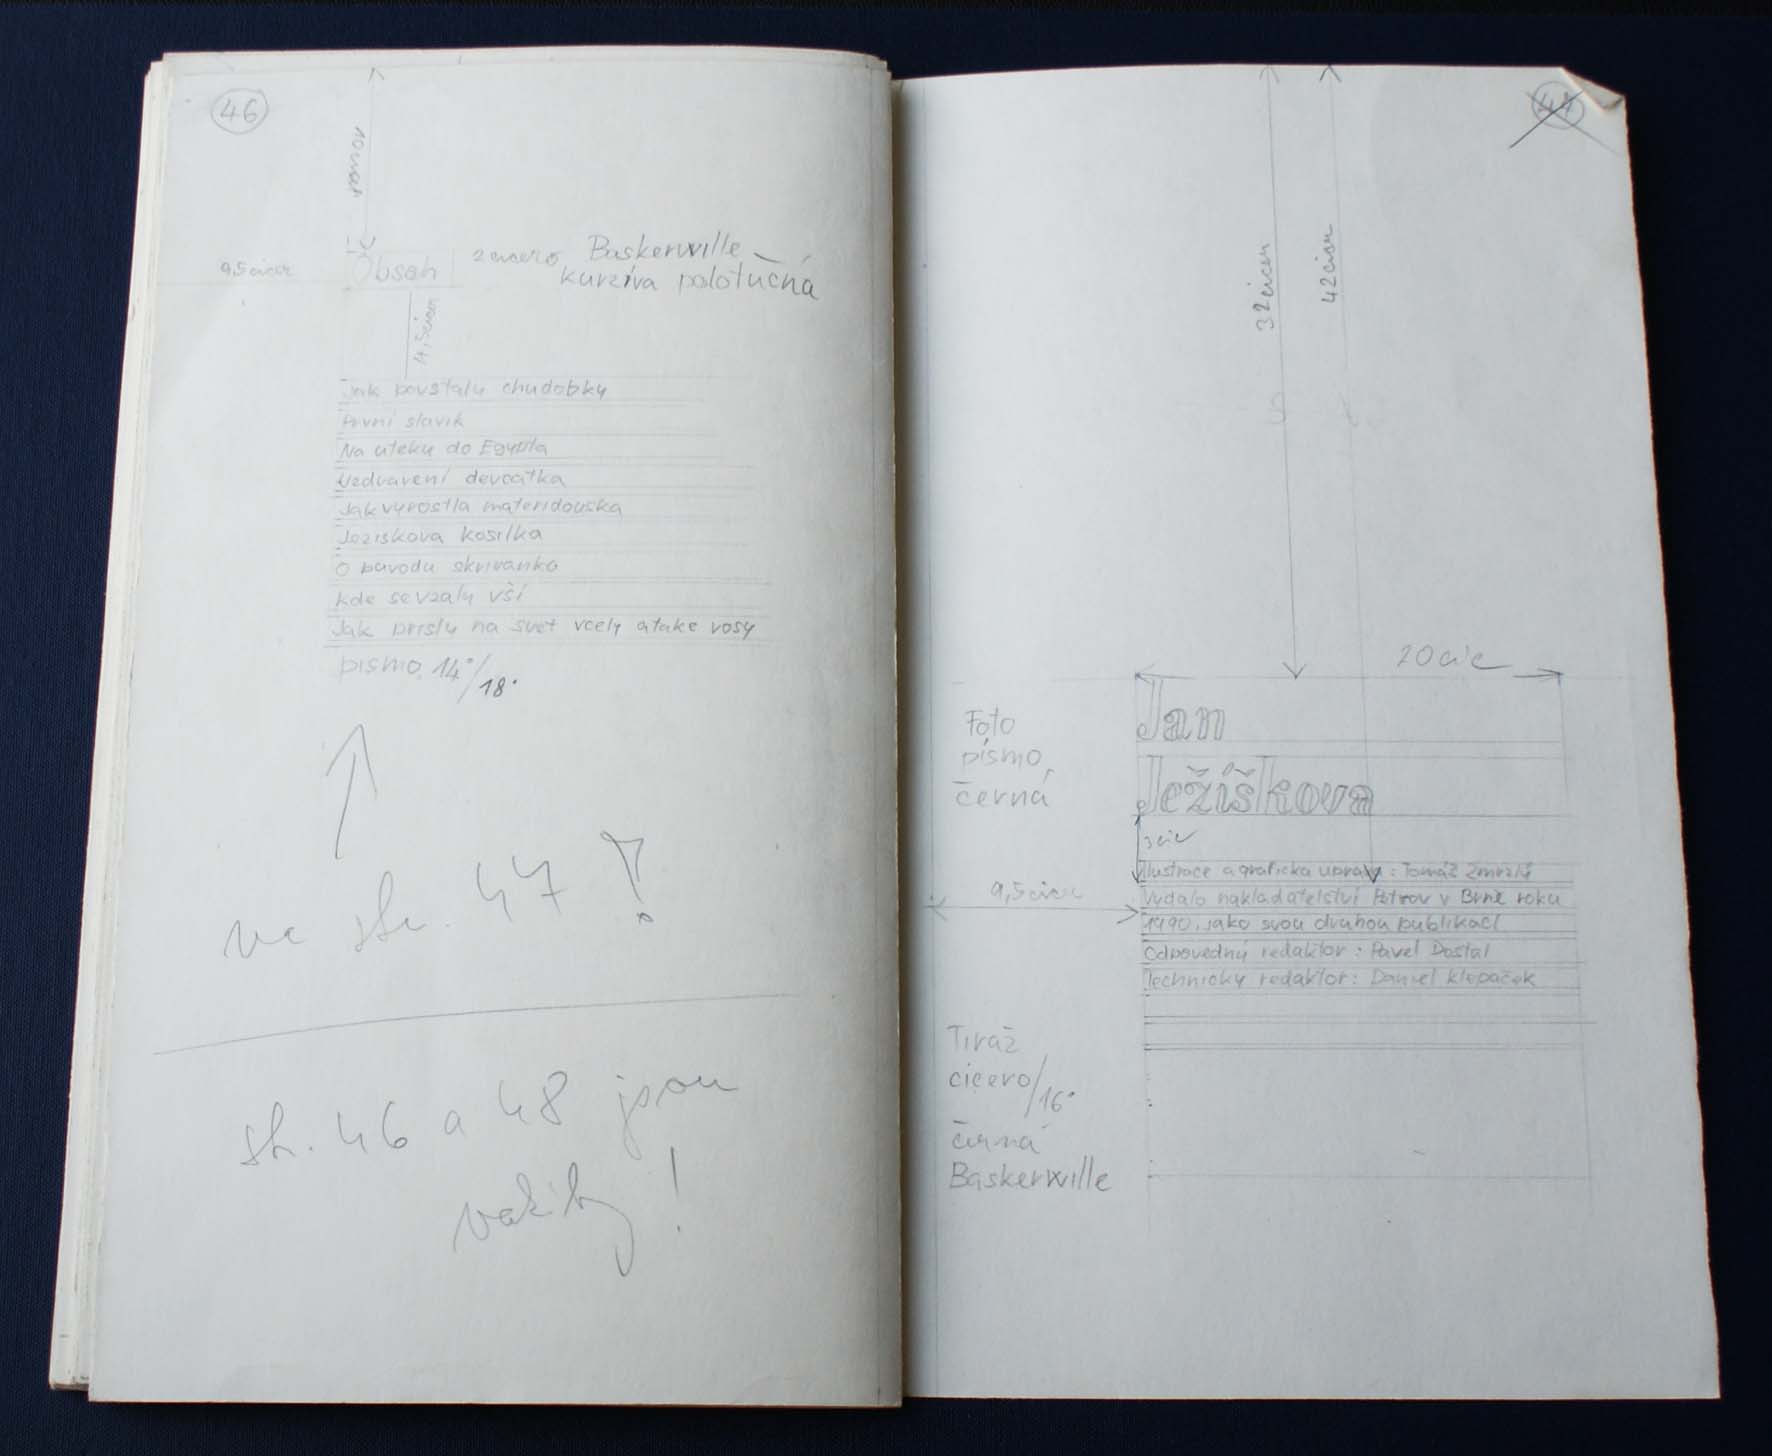 46
9,5 cicer
Obsah
2 cicero Baskerwille
kurzíva polotučná
4,5 cicer
Jak povstaly chudobky
První slavík
Na uteku do Egypta
Uzdravení devcatka
Jak vyrostla materidouska
Jeziskova kosilka
O puvodu skrivanka
Kde se vzaly vši
Jak prisly na svet vcely a take vosy
pismo 14°/18°
na str. 47!
str. 46 a 48 jsou
vakáty!
32 cicer
42 cicer
20 cic
Foto
písmo,
černá
Jan
Ježíškova
3 cic
9,5 cicer
Ilustrace a graficka uprava : Tomáš Zmrzlý
Vydalo nakladatelství Petrov v Brně roku
1990, jako svou druhou publikaci
Odpovedný redaktor : Pavel Dostal
Technicky redaktor : Daniel Klepaček
Tiráž
cicero/16°
černá
Baskerwille